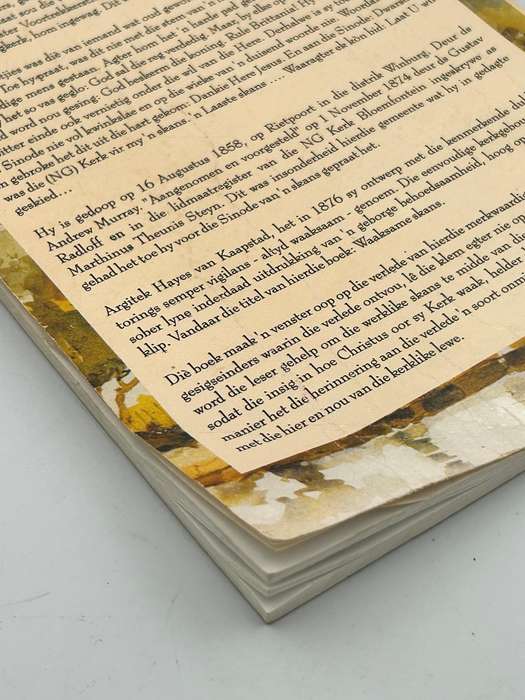 Voortrekkers
kerk, hom ingewag. Dit
tjies was die van iemand wat oud gewor
Tos bygraat, was dit nie met die stem van 'n
dige mens gestaan. Agter hom 'n harde pad ge
yet so vas geglo: God sal die reg verdedig. Maar by alles op
d word nou gesing: God beskerm die koning. Rule Brittania! Hy
bitter einde ook vernietig onder die wil van die Here. Deshalwe is sy to
Sinode nie vol kwinkslae en op die wieke van 'n duisend woorde nie. Woorda
n gebroke het dit uit die hart gekom: Dankie Here Jesus. En aan die Sinode: Dwarsde
was die (NG) Kerk vir my 'n skans 'n Laaste skans .... Waaragter ek kòn bid! Laat U wi
geskied ..
Hy is gedoop op 16 Augustus 1858, op Rietpoort in die distrik Winburg. Deur ds
Andrew Murray. "Aangenomen en voorgesteld" op 1 November 1874 deur ds Gustav
Radloff en in die lidmaatregister van die NG Kerk Bloemfontein ingeskrywe as
Marthinus Theunis Steyn. Dit was insonderheid hierdie gemeente wat hy in gedagte
gehad het toe hy voor die Sinode van 'n skans gepraat het.
Argitek Hayes van Kaapstad, het in 1876 sy ontwerp met die kenmerkende dr
torings semper vigilans - altyd waaksaam - genoem. Die eenvoudige kerkgebo
sober lyne inderdaad uitdrukking van 'n geborge behoedsaamheid, hoog op
klip. Vandaar die titel van hierdie boek: Waaksame skans.
Dié boek maak 'n venster oop op die verlede van hierdie merkwaardi
gesigseinders waarin die verlede ontvou, lê die klem egter nie op
word die leser gehelp om die werklike skans te midde van d
sodat die insig in hoe Christus oor sy Kerk waak, helder
manier het die herinnering aan die verlede 'n soort onm
met die hier en nou van die kerklike lewe.